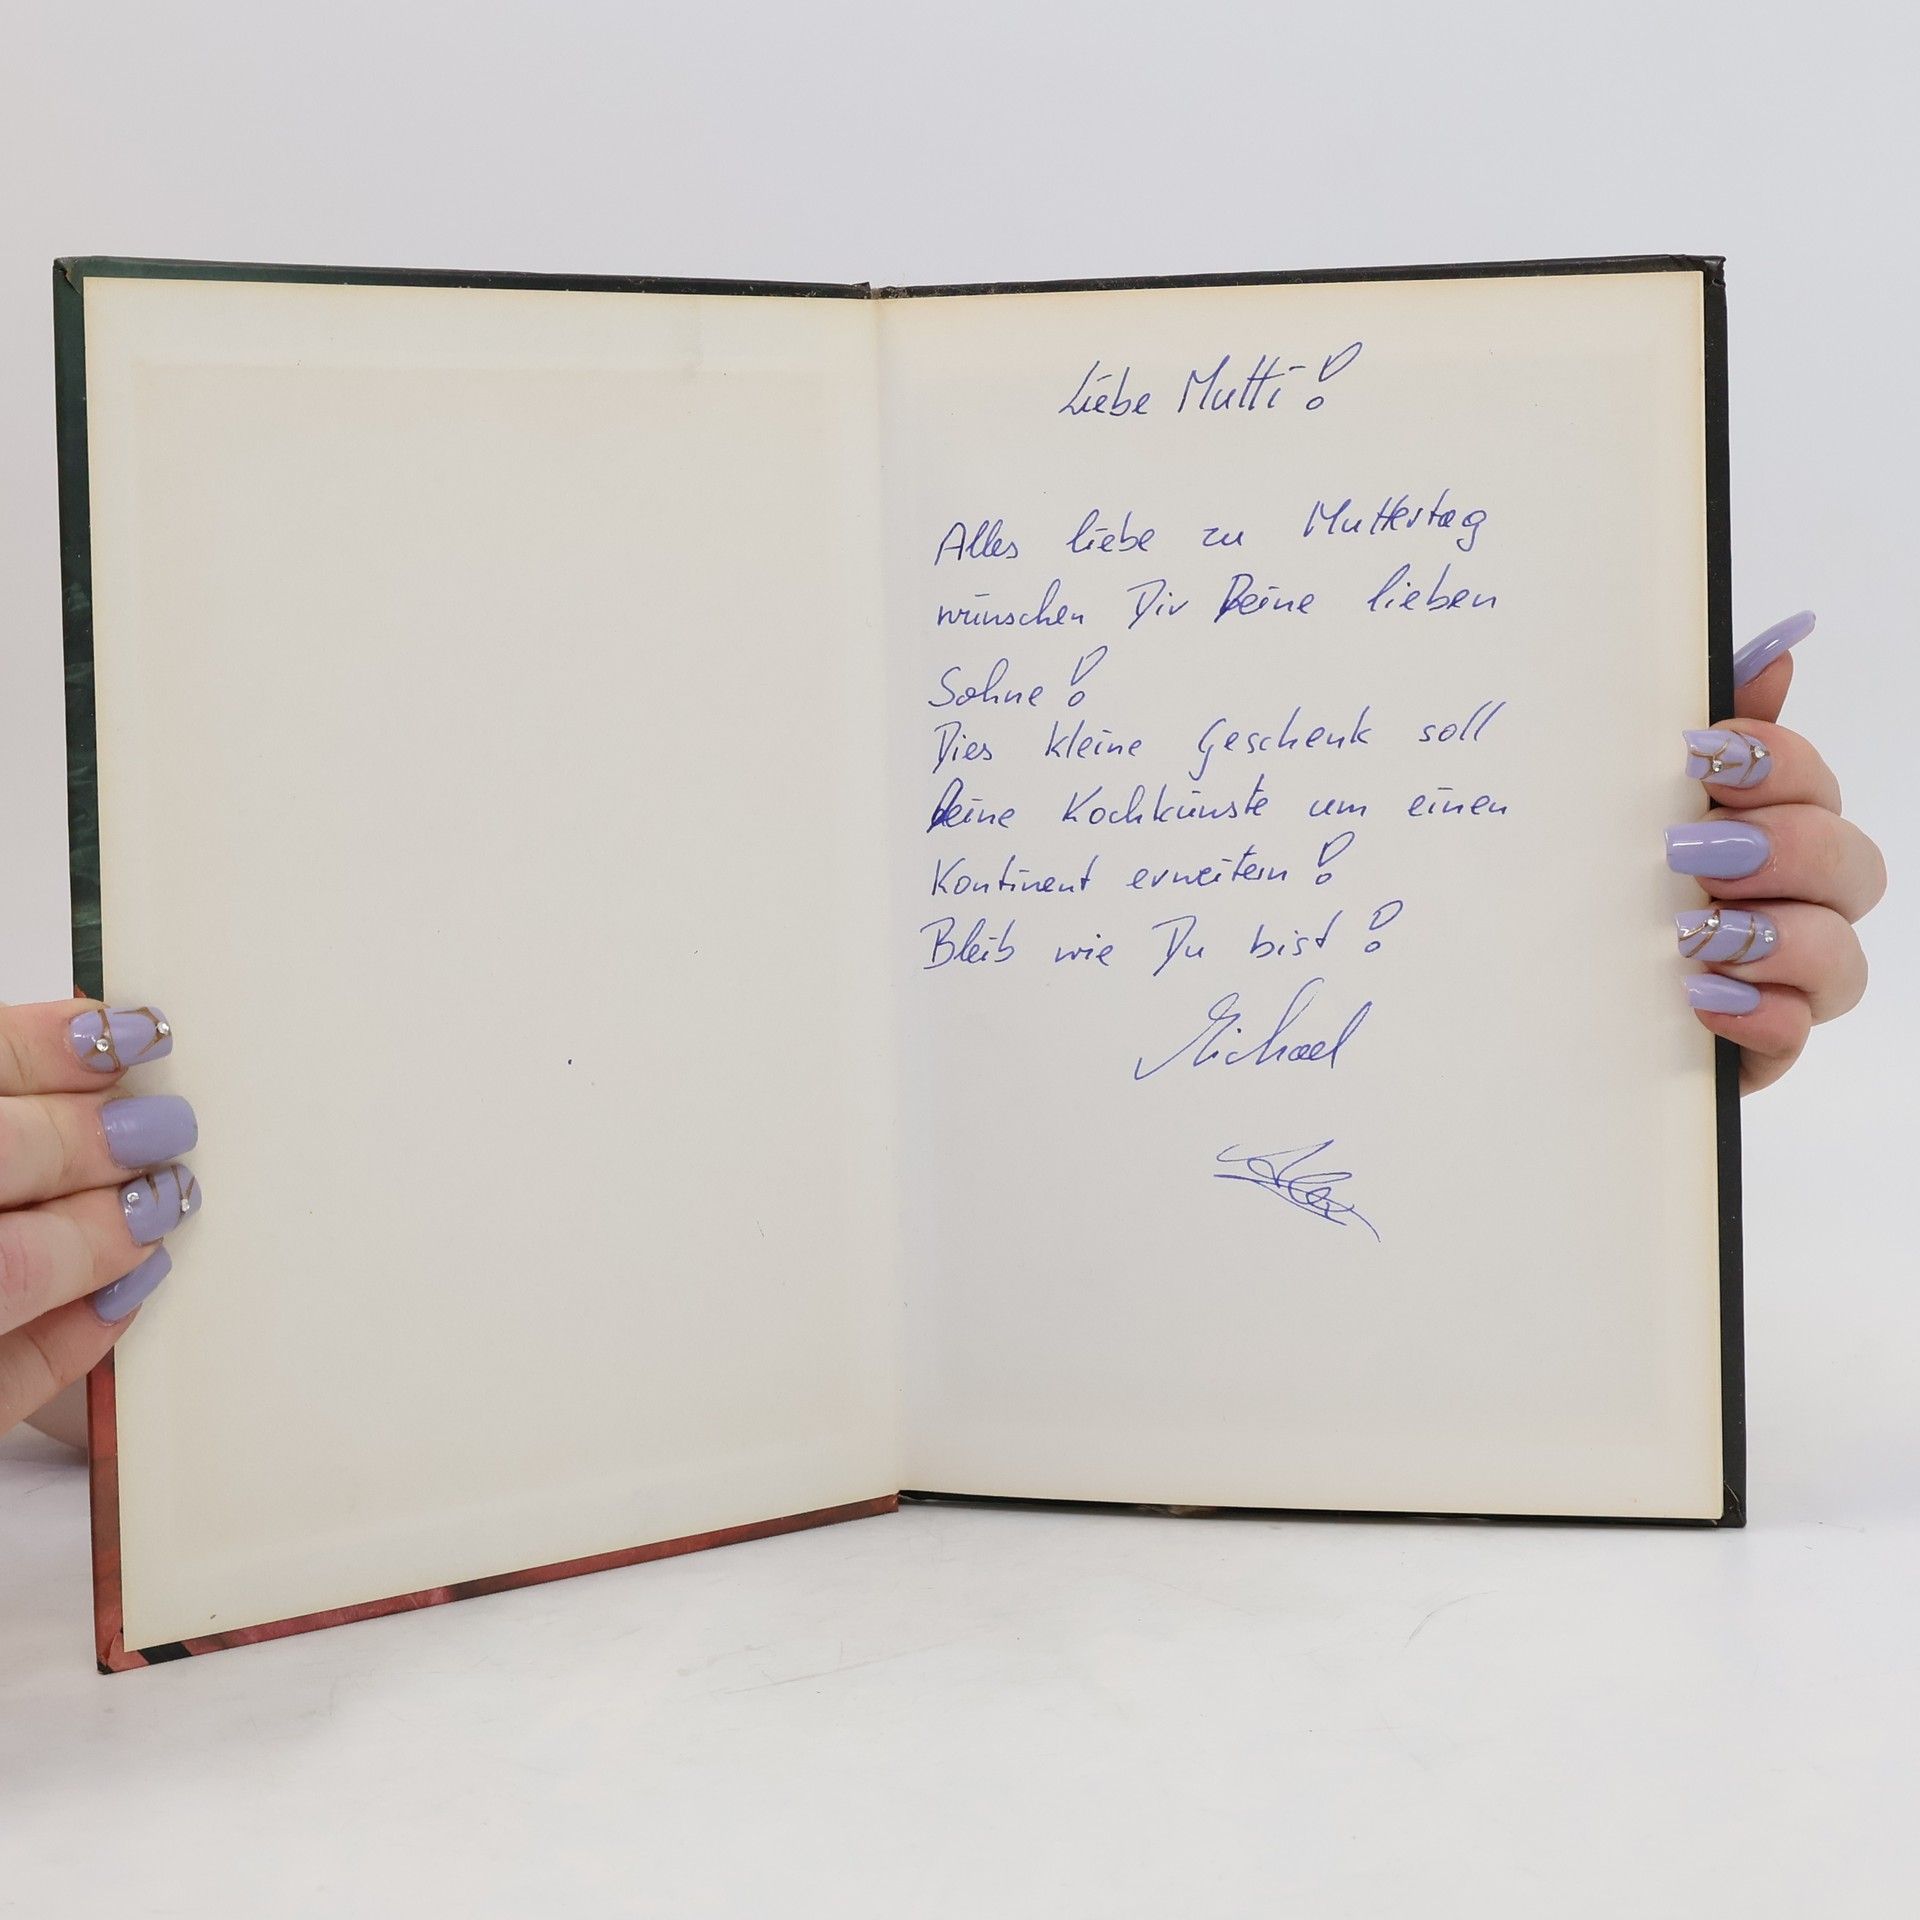 Liebe Mutti!
Alles liebe zu Muttertag
wünschen Dir Deine lieben
Söhne!
Dies kleine Geschenk soll
Deine Kochkünste um einen
Kontinent erweitern!
Bleib wie Du bist!
Michael
Alex